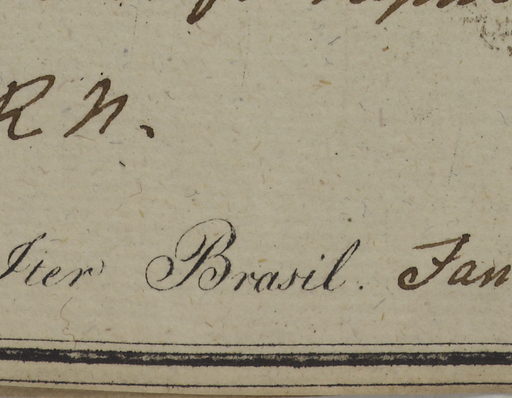 R N.
Iter Brasil. Jan